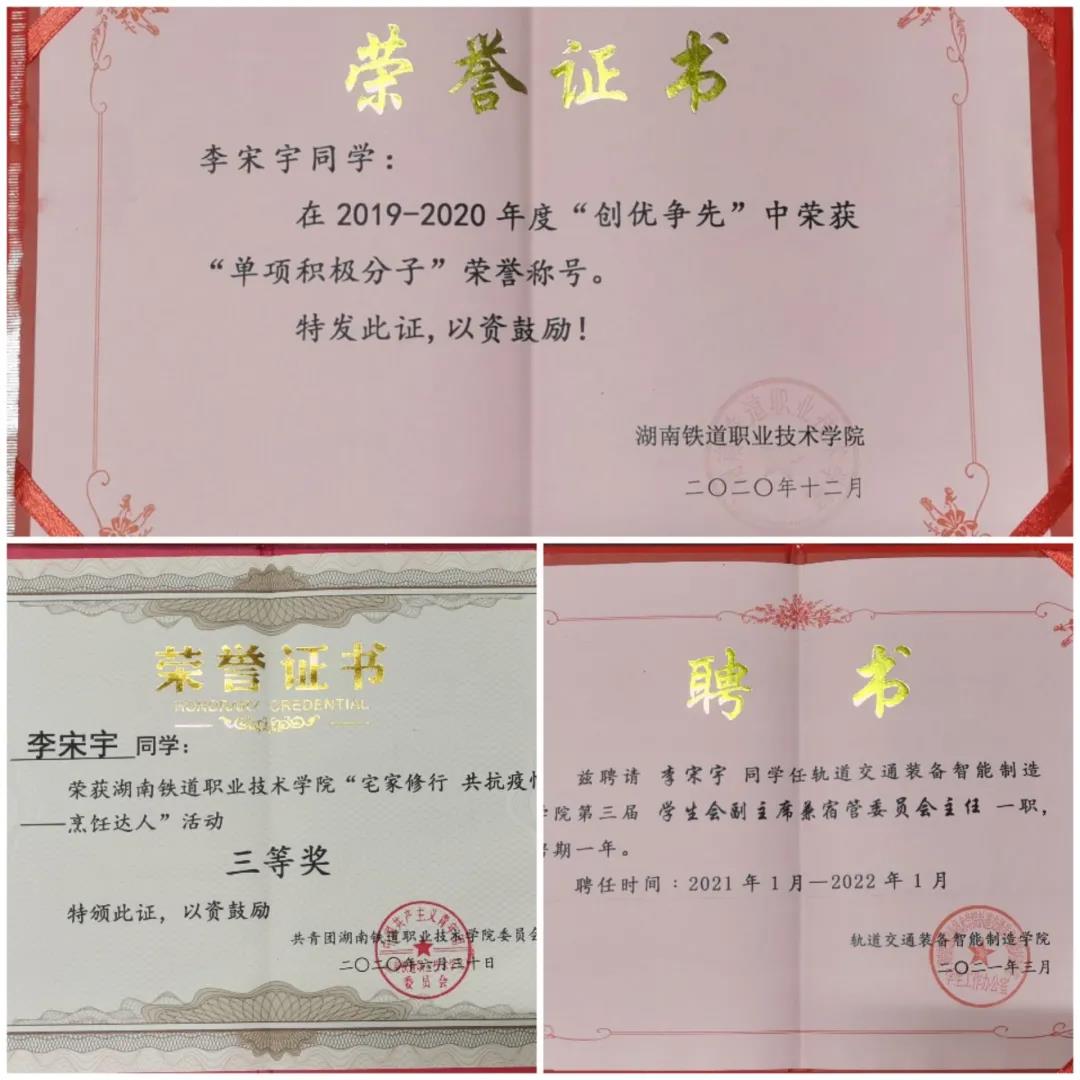 荣誉证书
李宋宇同学:
在2019-2020年度“创优争先”中荣获
“单项积极分子”荣誉称号。
特发此证,以资鼓励!
湖南铁道职业技术学院
二〇二〇年十二月
荣誉证书
HONORARY CREDENTIAL
李宋宇 同学:
荣获湖南铁道职业技术学院“宅家修行 共抗疫
——烹饪达人”活动
三等奖
特颁此证,以资鼓励
共青团湖南铁道职业技术学院委员会
二〇二〇年六月三十日
委员会
聘书
兹聘请 李宋宇 同学任轨道交通装备智能制造
学院第三届 学生会副主席兼宿管委员会主任 一职,
聘期一年。
聘任时间:2021年1月—2022年1月
轨道交通装备智能制造学院
二〇二一年三月